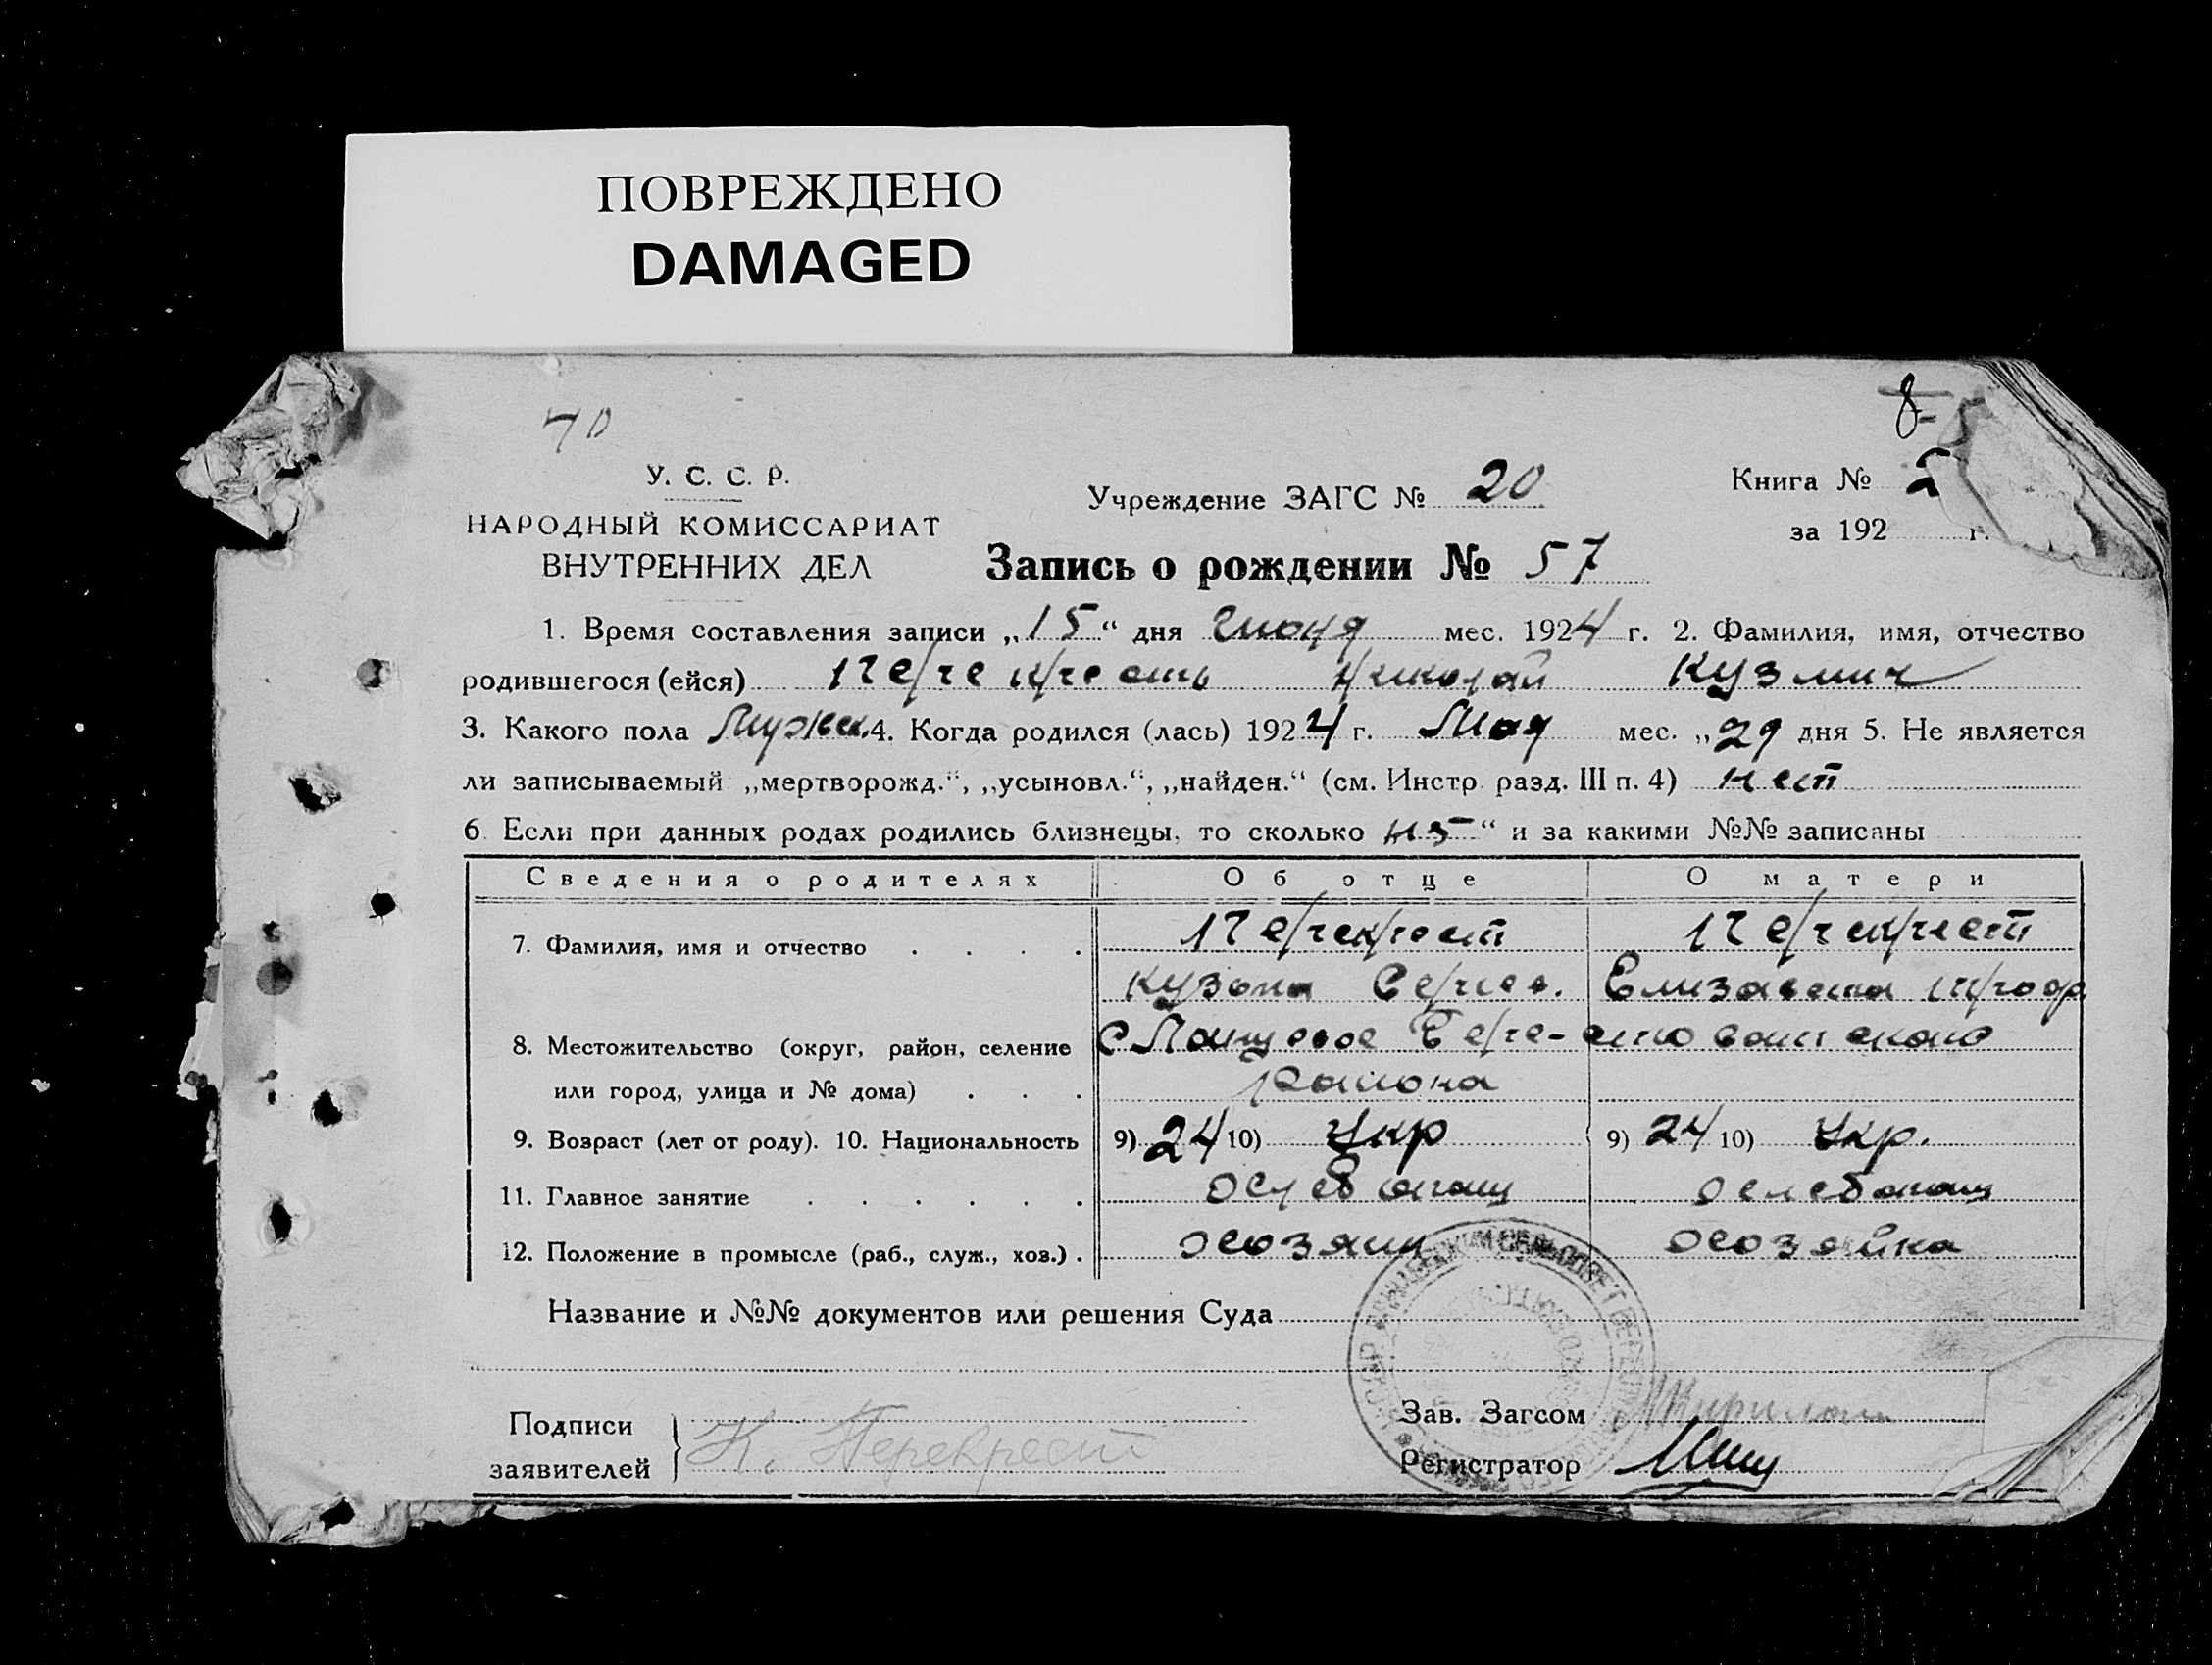 ПОВРЕЖДЕНО
DAMAGED
У. С. С. Р.
НАРОДНЫЙ КОМИССАРИАТ
ВНУТРЕННИХ ДЕЛ
Учреждение ЗАГС № 20
Книга №
за 192 г.
Запись о рождении № 57
1. Время составления записи „15“ дня Июня мес. 1924 г. 2. Фамилия, имя, отчество
родившегося (ейся) Перекресть Николай Кузмич
3. Какого пола Мужск. 4. Когда родился (лась) 1924 г. Мая мес. „29 дня 5. Не является
ли записываемый „мертворожд.“, „усыновл.“, „найден.“ (см. Инстр. разд. III п. 4) нет
6. Если при данных родах родились близнецы, то сколько “ и за какими №№ записаны
Сведения о родителях Об отце О матери
7. Фамилия, имя и отчество . . . . Перекрест Перекрест
Кузьма Сергеев. Елизавета
8. Местожительство (округ, район, селение с Берестовеньскаго
или город, улица и № дома) . . . района
9. Возраст (лет от роду). 10. Национальность 9) 24 10) Укр 9) 24 10) Укр.
11. Главное занятие . . . . . . хлебопаш хлебопаш
12. Положение в промысле (раб., служ., хоз.) . хозяин хозяйка
Название и №№ документов или решения Суда
Подписи
заявителей } К. Перекрест
Зав. Загсом
Регистратор